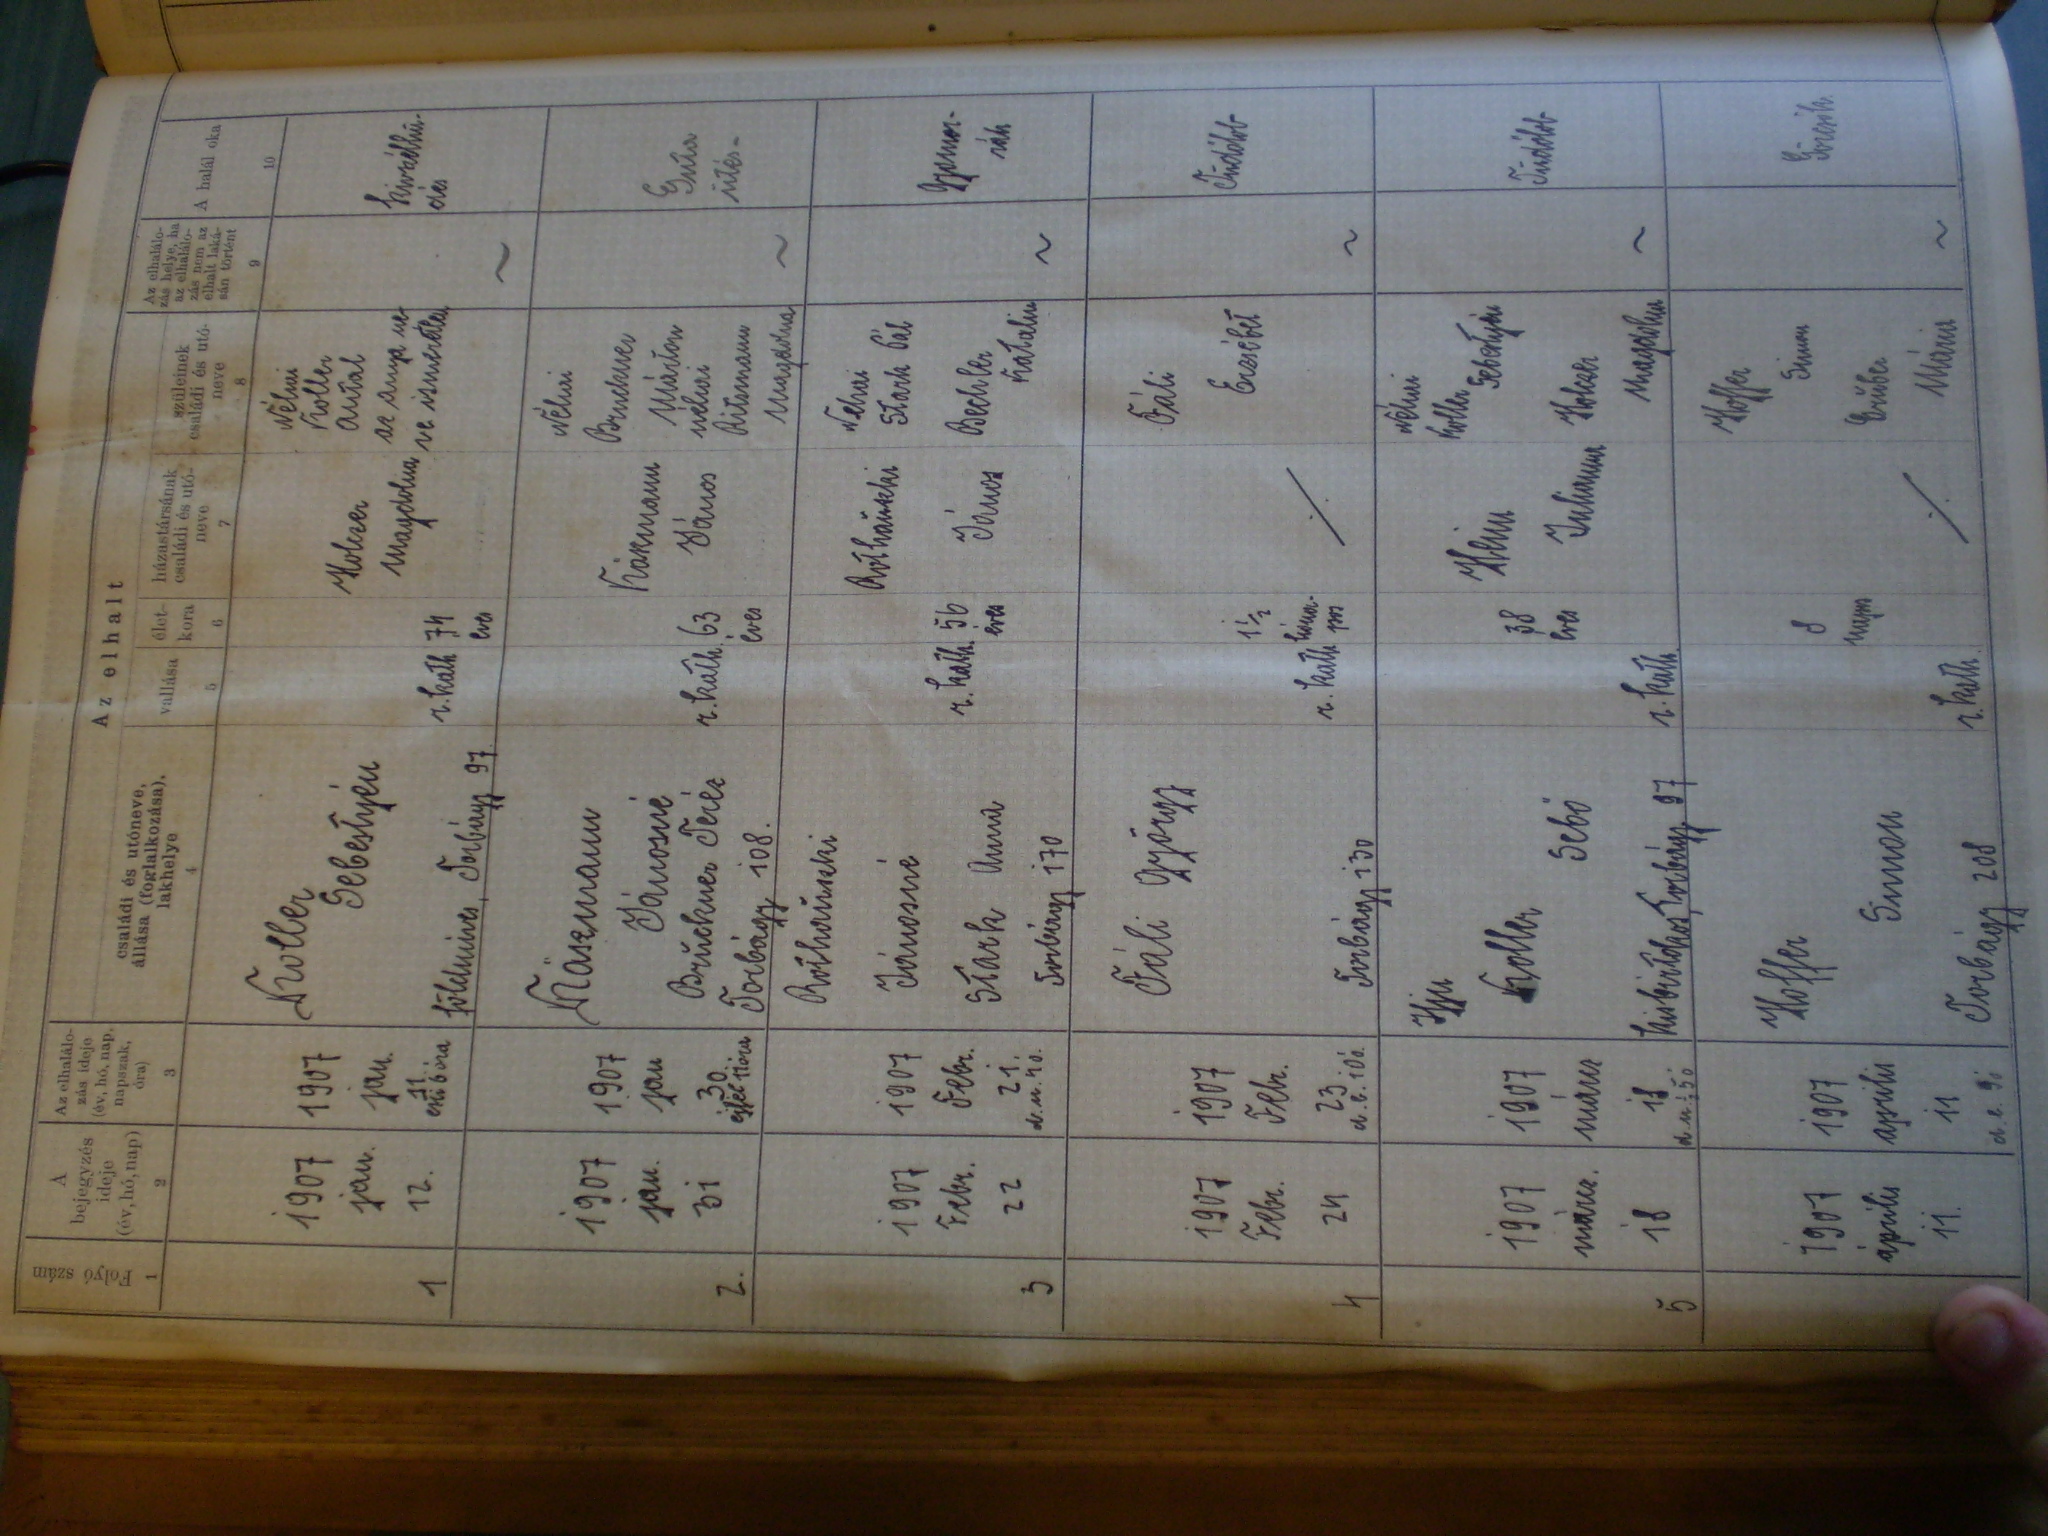 Az elhalt
Folyó szám
A bejegyzés ideje (év, hó, nap)
Az elhalálo-
zás ideje
(év, hó, nap,
napszak,
óra)
családi és utóneve,
állása (foglalkozása),
lakhelye
vallása
élet-
kora
házastársának
családi és utó-
neve
szüleinek
családi és utó-
neve
Az elhalálo-
zás helye, ha
az elhalálo-
zás nem az
elhalt laká-
sán történt
A halál oka
1 2 3 4 5 6 7 8 9 10
1
1907
jan.
12.
1907
jan.
11
esti 6 óra
Koller
Sebestyén
földmives, Torbágy 97.
r. kath
74
éves
Holczer
Magdolna
Néhai
Koller
Antal
az anya ne-
ve ismeretlen
~
kivérhű-
2.
1907
jan.
31
1907
jan
30.
Jánosné
Brückner Teréz
Torbágy 108.
r. kath.
63
éves
János
Néhai
Brückner
Márton
néhai
Magdolna
~
Guta
ütés-
3
1907
Febr.
22
1907
Febr.
21.
d. u. 4 ó.
Jánosné
Stark Anna
Torbágy 170
r. kath.
56
éves
János
Néhai
Stark Pál
Bechler
Katalin
~
Gyomor-
rák
4
1907
Febr.
24
1907
Febr.
23
d. e. 10 ó.
Páli György
Torbágy 130
r. kath
1 1/2
hóna-
pos
/
Páli
Erzsébet
~
Tüdőlob-
5
1907
márcz.
18
1907
márcz
18
d. u. 5 ó
Ifju
Koller
Sebő
kisbirtokos, Torbágy, 97
r. kath.
38
éves
Hein
Julianna
Néhai
Koller Sebestyén
Holczer
Magdolna
~
Tüdőlob-
1907
április
11.
1907
április
11
d. e. 9 ó
Hoffer
Simon
Torbágy 208
r. kath.
8
napos
/
Hoffer
Simon
Gruber
Mária
~
Görcsök.